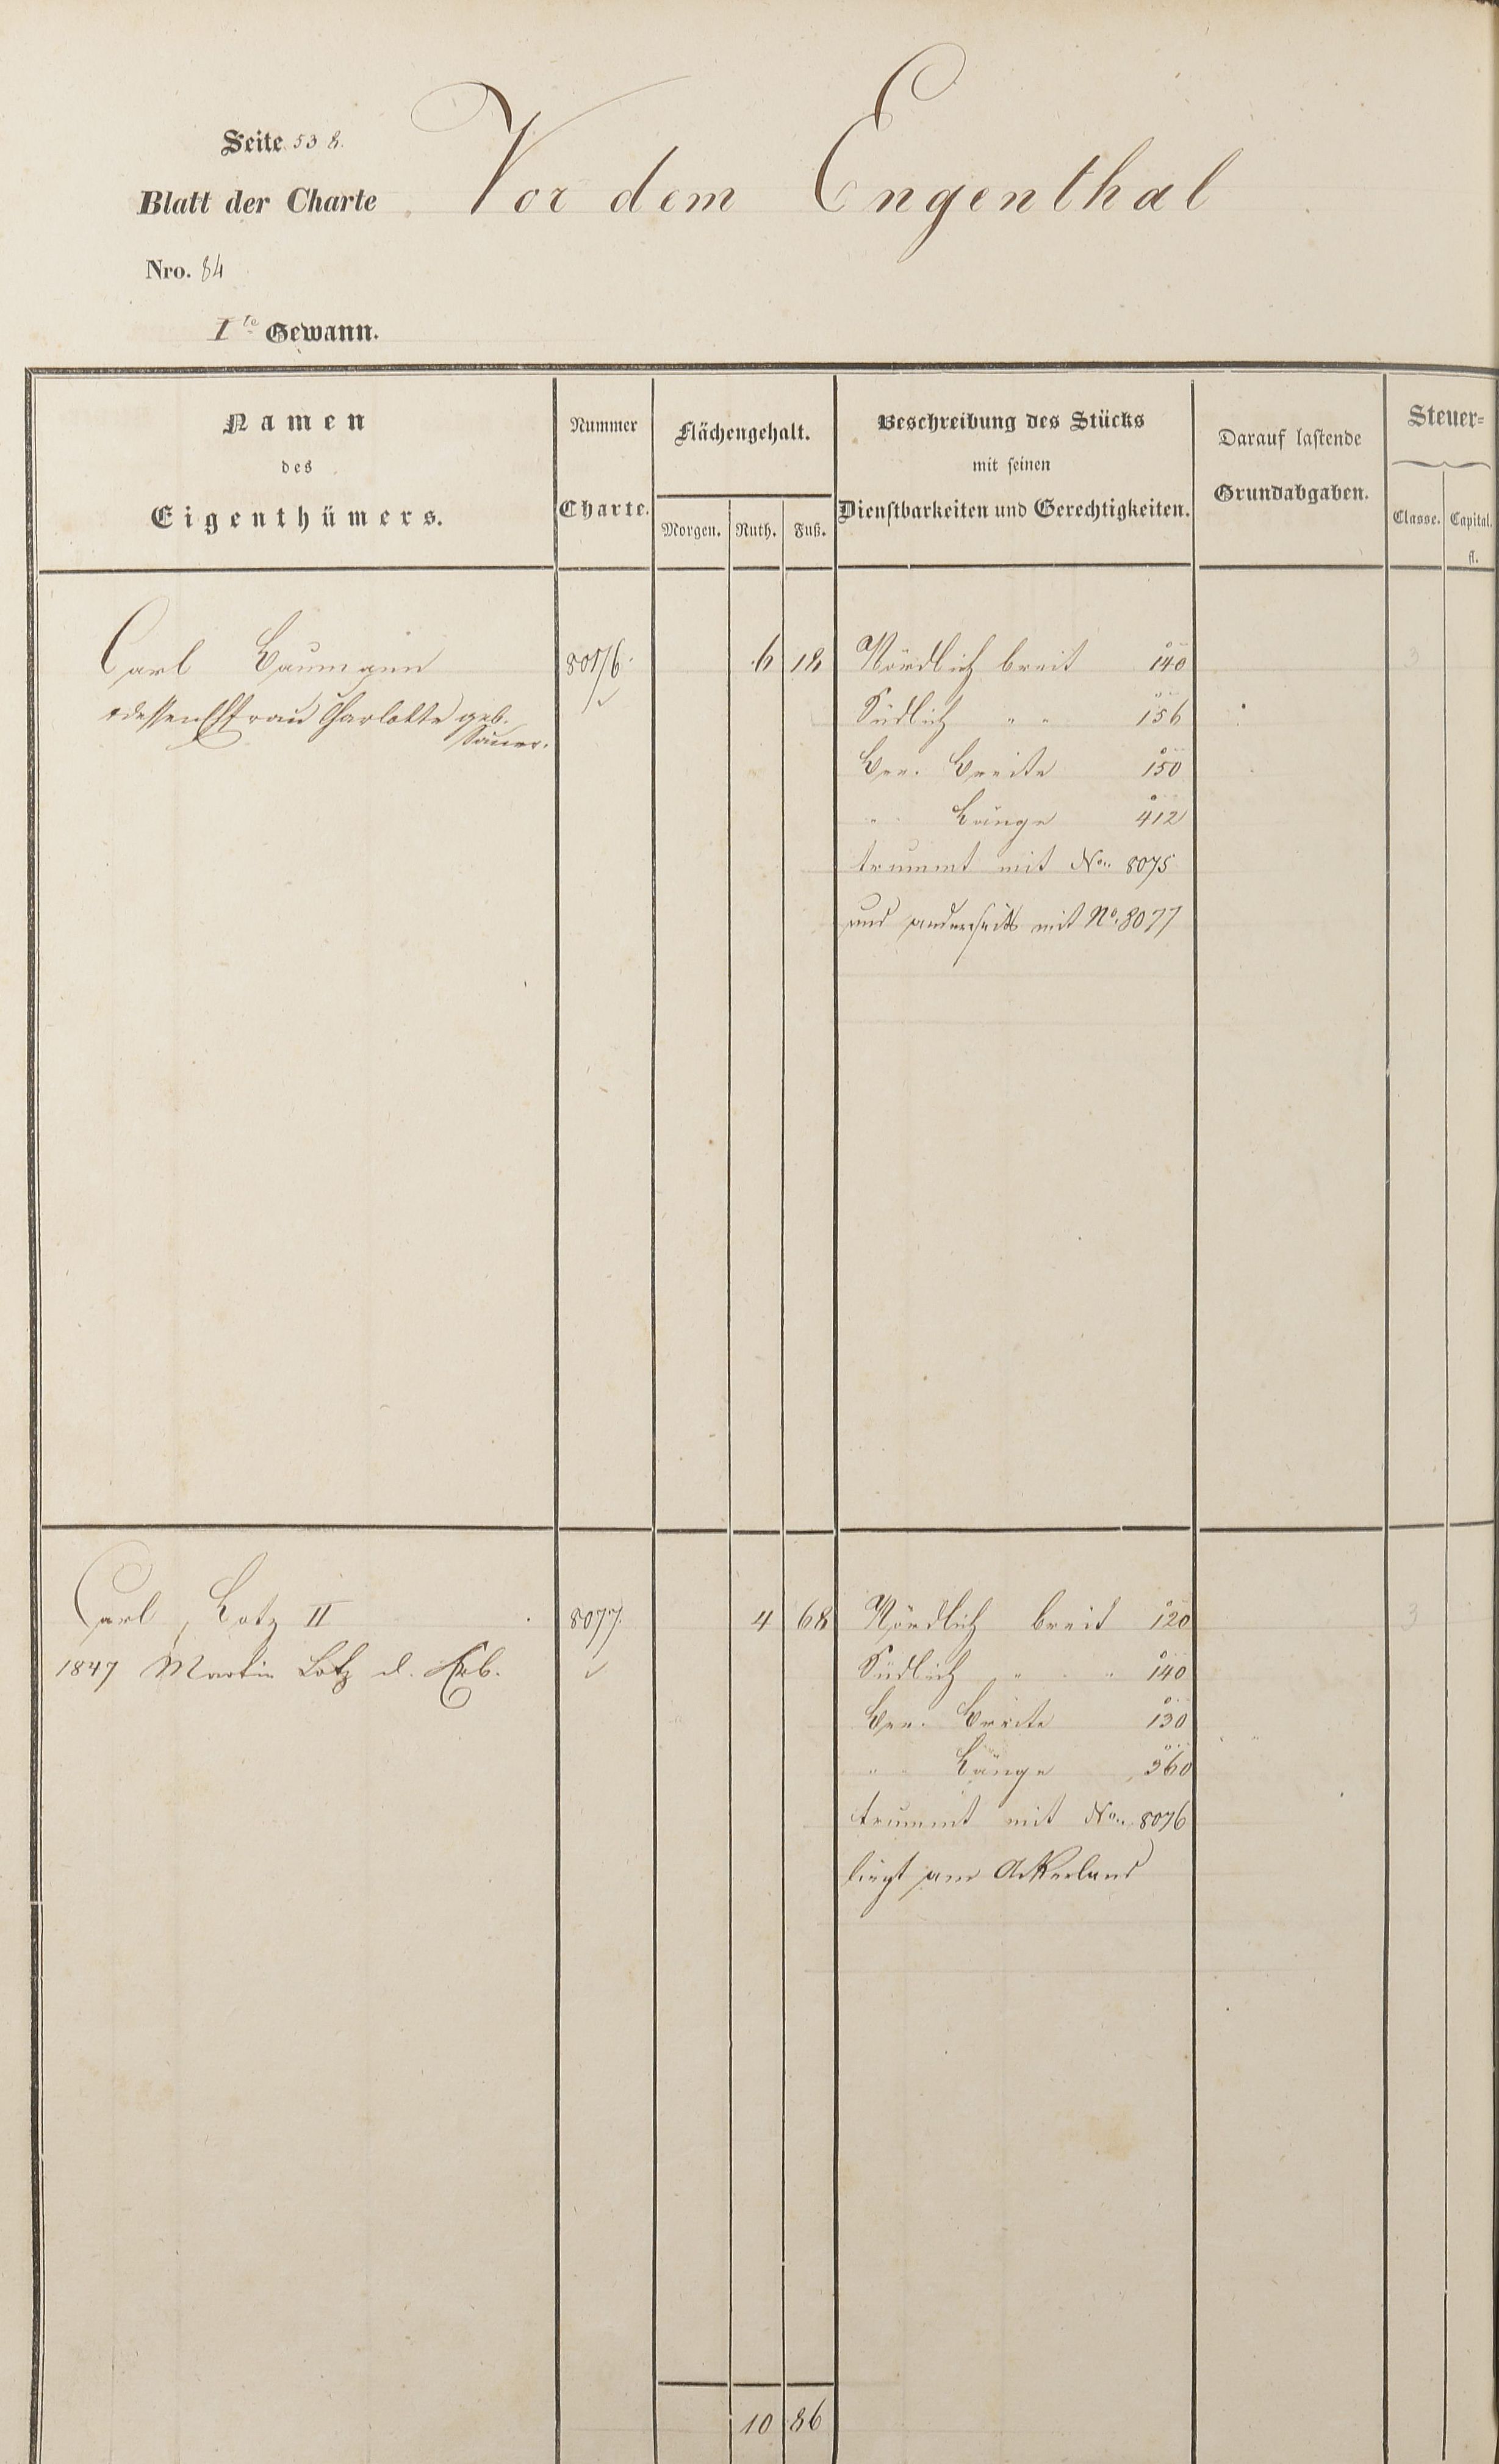 Seite 538.
Blatt der Charte
Nro. 84
Vor dem Engenthal
I te Gewann.
Namen
des
Eigenthümers.
Nummer
Charte.
Flächengehalt.
Morgen. Ruth. Fuß.
Beschreibung des Stücks
mit seinen
Dienstbarkeiten und Gerechtigkeiten.
Darauf lastende
Grundabgaben.
Steuer=
Classe. Capital.
fl.
Carl Baumann 8076. 6 18 Nördlich breit 140 3
dessen Ehfrau Charlotte geb. Südlich " " 156
Sauer.
Ber. Breite 150
" Länge 412
trummt mit No. 8075
und anderseits mit No. 8077
Carl Lotz II 8077. 4 68 Nördlich breit 120 3
1847 Martin Lotz d. Erb. Südlich " " 140
Ber. Breite 130
" " Länge 360
trummt mit No. 8076
liegt am Ackerland
10 86